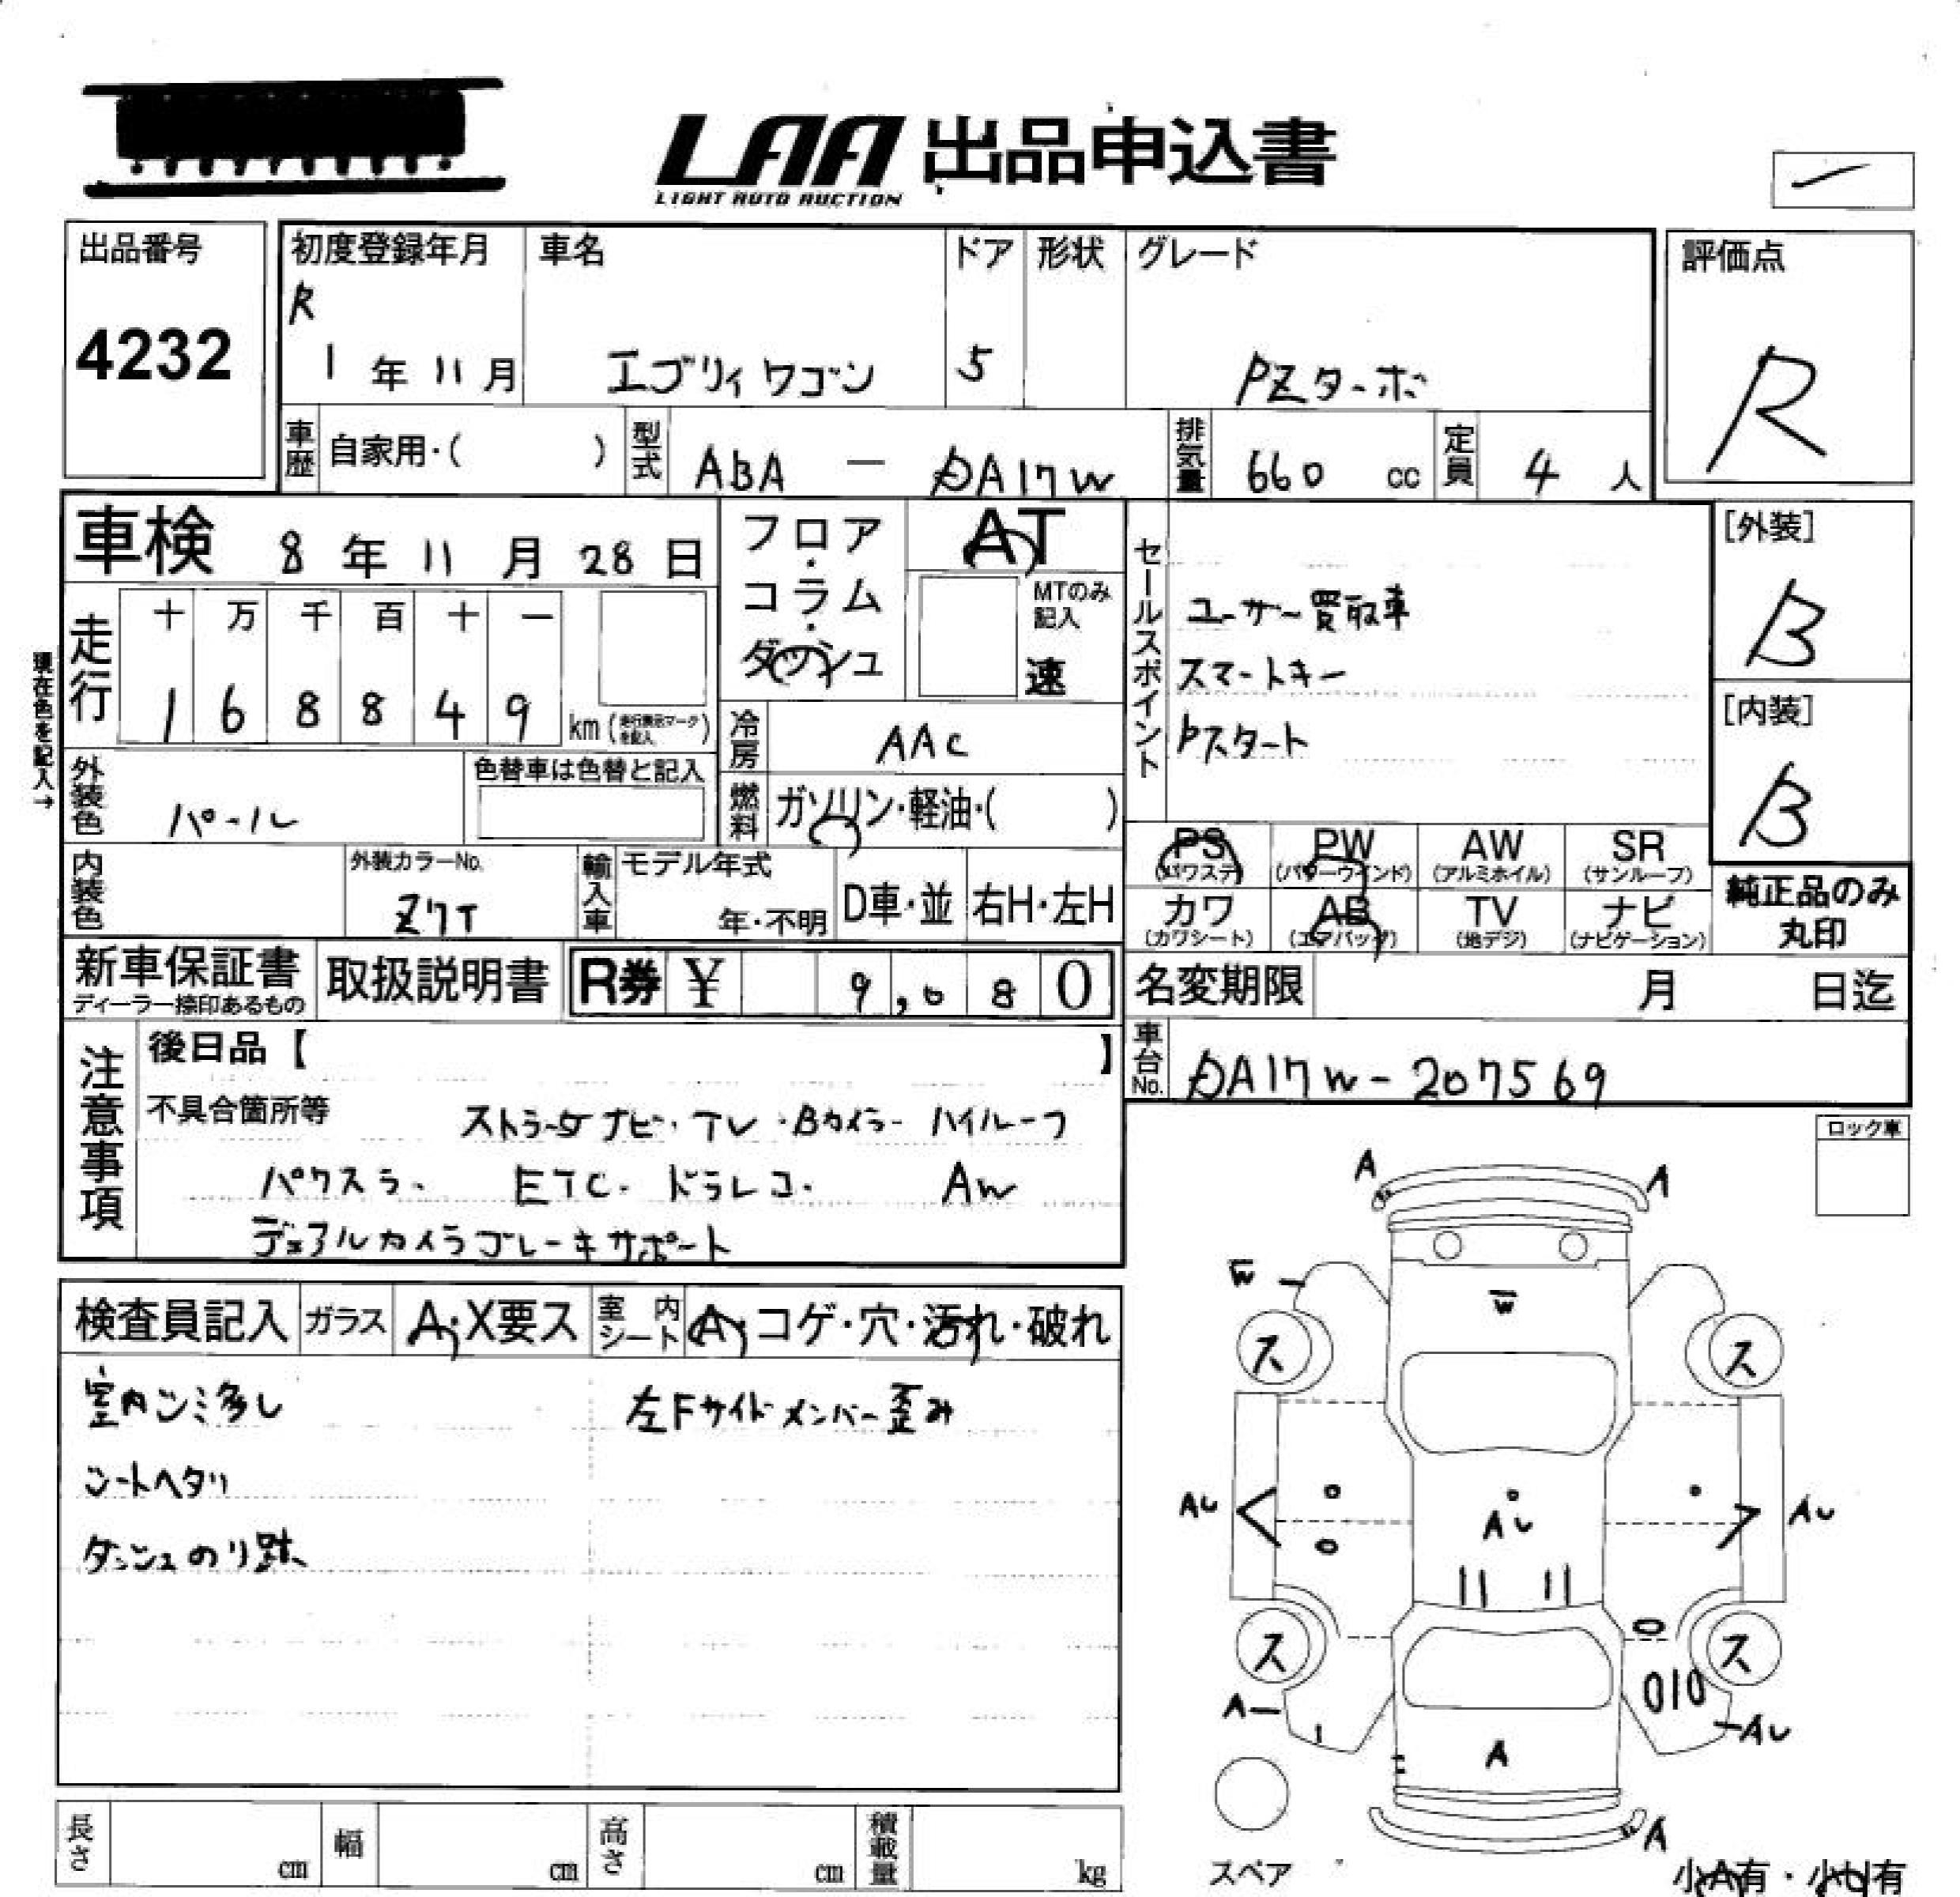 LAA 出品申込書
LIGHT AUTO AUCTION
出品番号
4232
初度登録年月
R
1 年 11 月
車名
エブリィワゴン
ドア
5
形状
グレード
PZターボ
評価点
R
車歴
自家用・( )
型式
ABA ー DA17W
排気量
660 cc
定員
4 人
車検 8 年 11 月 28 日
フロア・コラム・ダッシュ
AT
MTのみ記入
速
セールスポイント
ユーザー買取車
スマートキー
Pスタート
[外装]
B
[内装]
B
現在色を記入→
走行
十 万 千 百 十 一
1 6 8 8 4 9
km (走行表示マークを記入)
冷房
AAC
外装色
パール
色替車は色替と記入
燃料
ガソリン・軽油・( )
PS (パワステ)
PW (パワーウインド)
AW (アルミホイル)
SR (サンルーフ)
カワ (カワシート)
AB (エアバッグ)
TV (地デジ)
ナビ (ナビゲーション)
純正品のみ丸印
内装色
外装カラーNo.
Z7T
輸入車
モデル年式
年・不明
D車・並
右H・左H
新車保証書
ディーラー捺印あるもの
取扱説明書
R券 ¥ 9,080
名変期限 月 日迄
車台No.
DA17W-207569
注意事項
後日品【 】
不具合箇所等
ストラーダナビ・TV・Bカメラ・ハイルーフ
パワスラ・ ETC・ドラレコ・ AW
デュアルカメラブレーキサポート
ロック車
検査員記入
ガラス
A・X要ス
室内シート
A・コゲ・穴・汚れ・破れ
室内ゴミ多し
左Fサイドメンバー歪み
シートヘタリ
ダッシュのり跡
A
A
W
W
ス
ス
AU
AU
AU
ス
ス
A
AU
A
A
スペア
小A有・小U有
長さ cm
幅 cm
高さ cm
積載量 kg